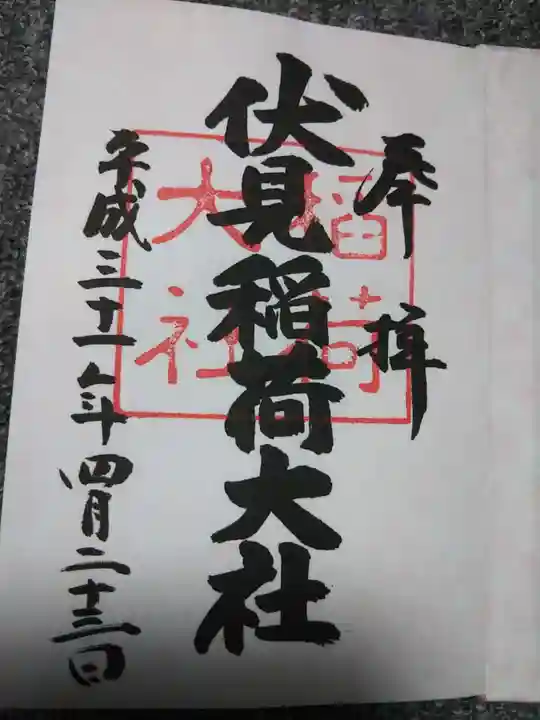 奉拝
伏見稲荷大社
稲荷
大社
平成三十一年四月二十三日